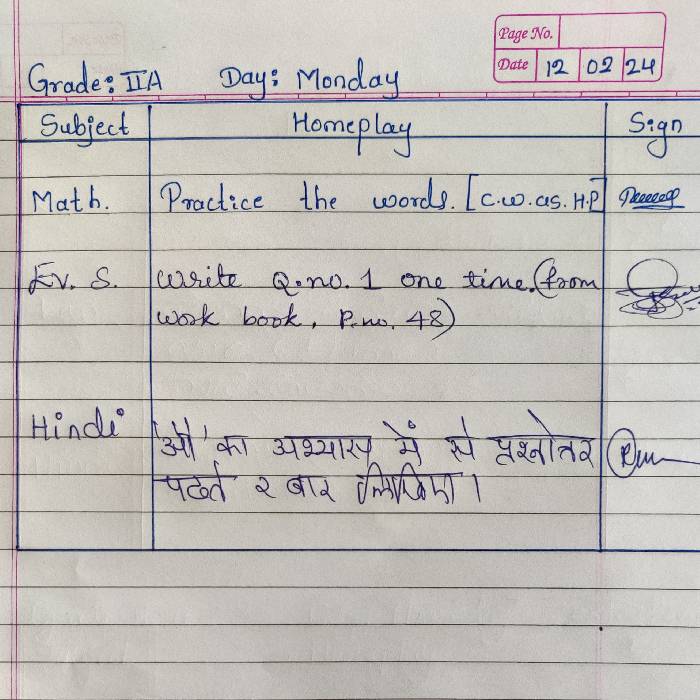 Page No.
Date 12 02 24
Grade: IIA Day: Monday
Subject Homeplay Sign
Math. Practice the words. [C.W.as. H.P]
Ev. S. Write Q.no. 1 one time. (from
work book, P.no. 48)
Hindi 'औ' का अभ्यास में से प्रश्नोतर
२ बार लिखिए।